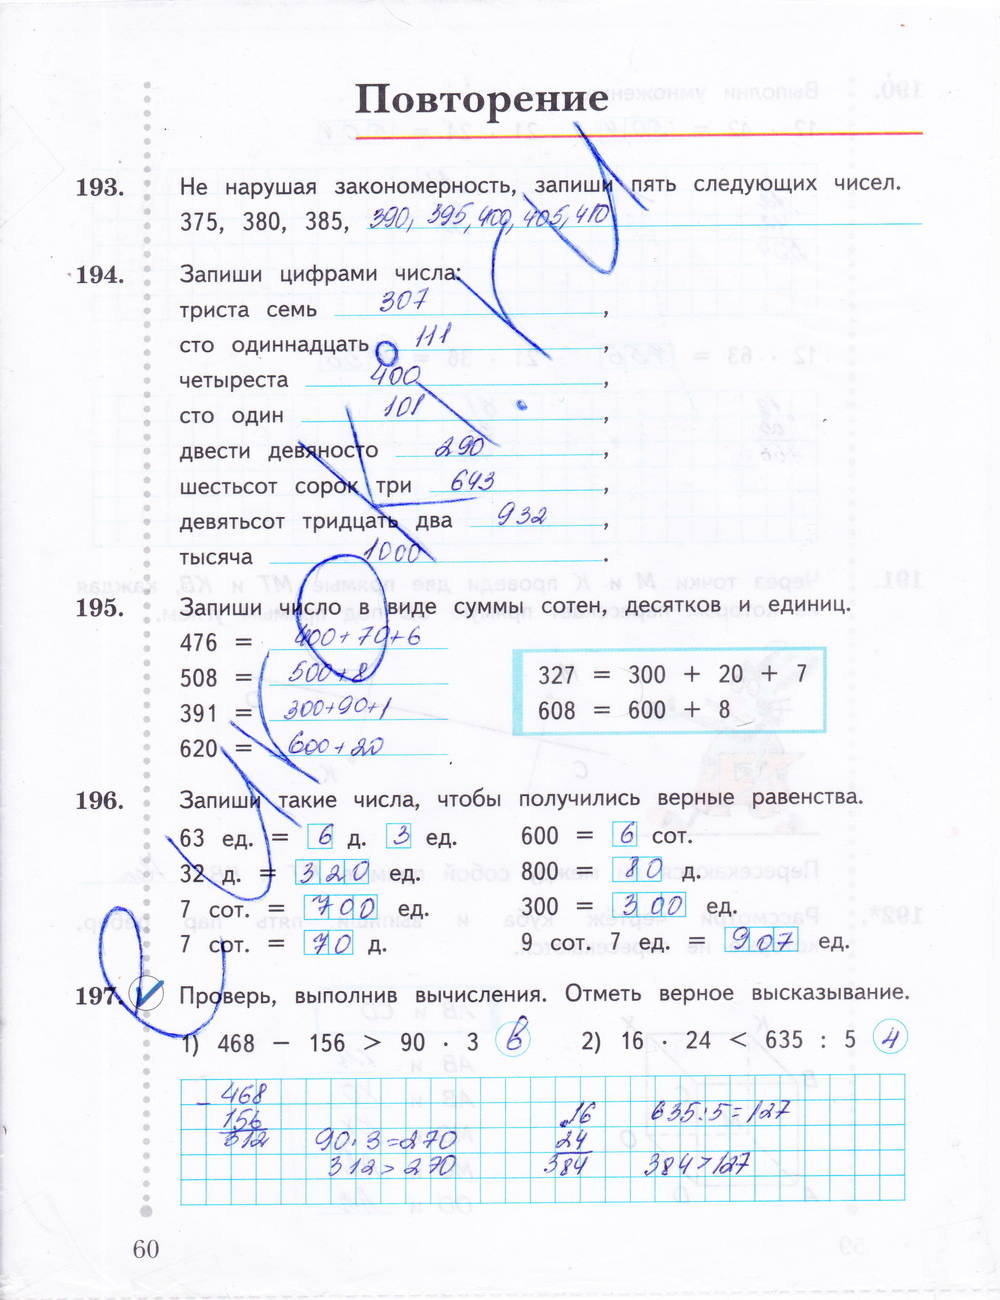 Повторение
193. Не нарушая закономерность, запиши пять следующих чисел.
375, 380, 385, 390, 395, 400, 405, 410
194. Запиши цифрами числа:
триста семь 307 ,
сто одиннадцать 111 ,
четыреста 400 ,
сто один 101 ,
двести девяносто 290 ,
шестьсот сорок три 643 ,
девятьсот тридцать два 932 ,
тысяча 1000 .
195. Запиши число в виде суммы сотен, десятков и единиц.
476 = 400+70+6
508 = 500+8
391 = 300+90+1
620 = 600+20
327 = 300 + 20 + 7
608 = 600 + 8
196. Запиши такие числа, чтобы получились верные равенства.
63 ед. = 6 д. 3 ед. 600 = 6 сот.
32 д. = 320 ед. 800 = 80 д.
7 сот. = 700 ед. 300 = 300 ед.
7 сот. = 70 д. 9 сот. 7 ед. = 907 ед.
197. Проверь, выполнив вычисления. Отметь верное высказывание.
1) 468 − 156 > 90 · 3 в 2) 16 · 24 < 635 : 5 ч
− 468
156
312
90·3=270
312>270
·16
24
384
635:5=127
384>127
60